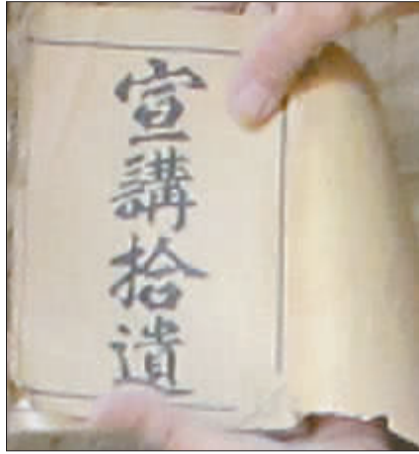 宣講拾遺